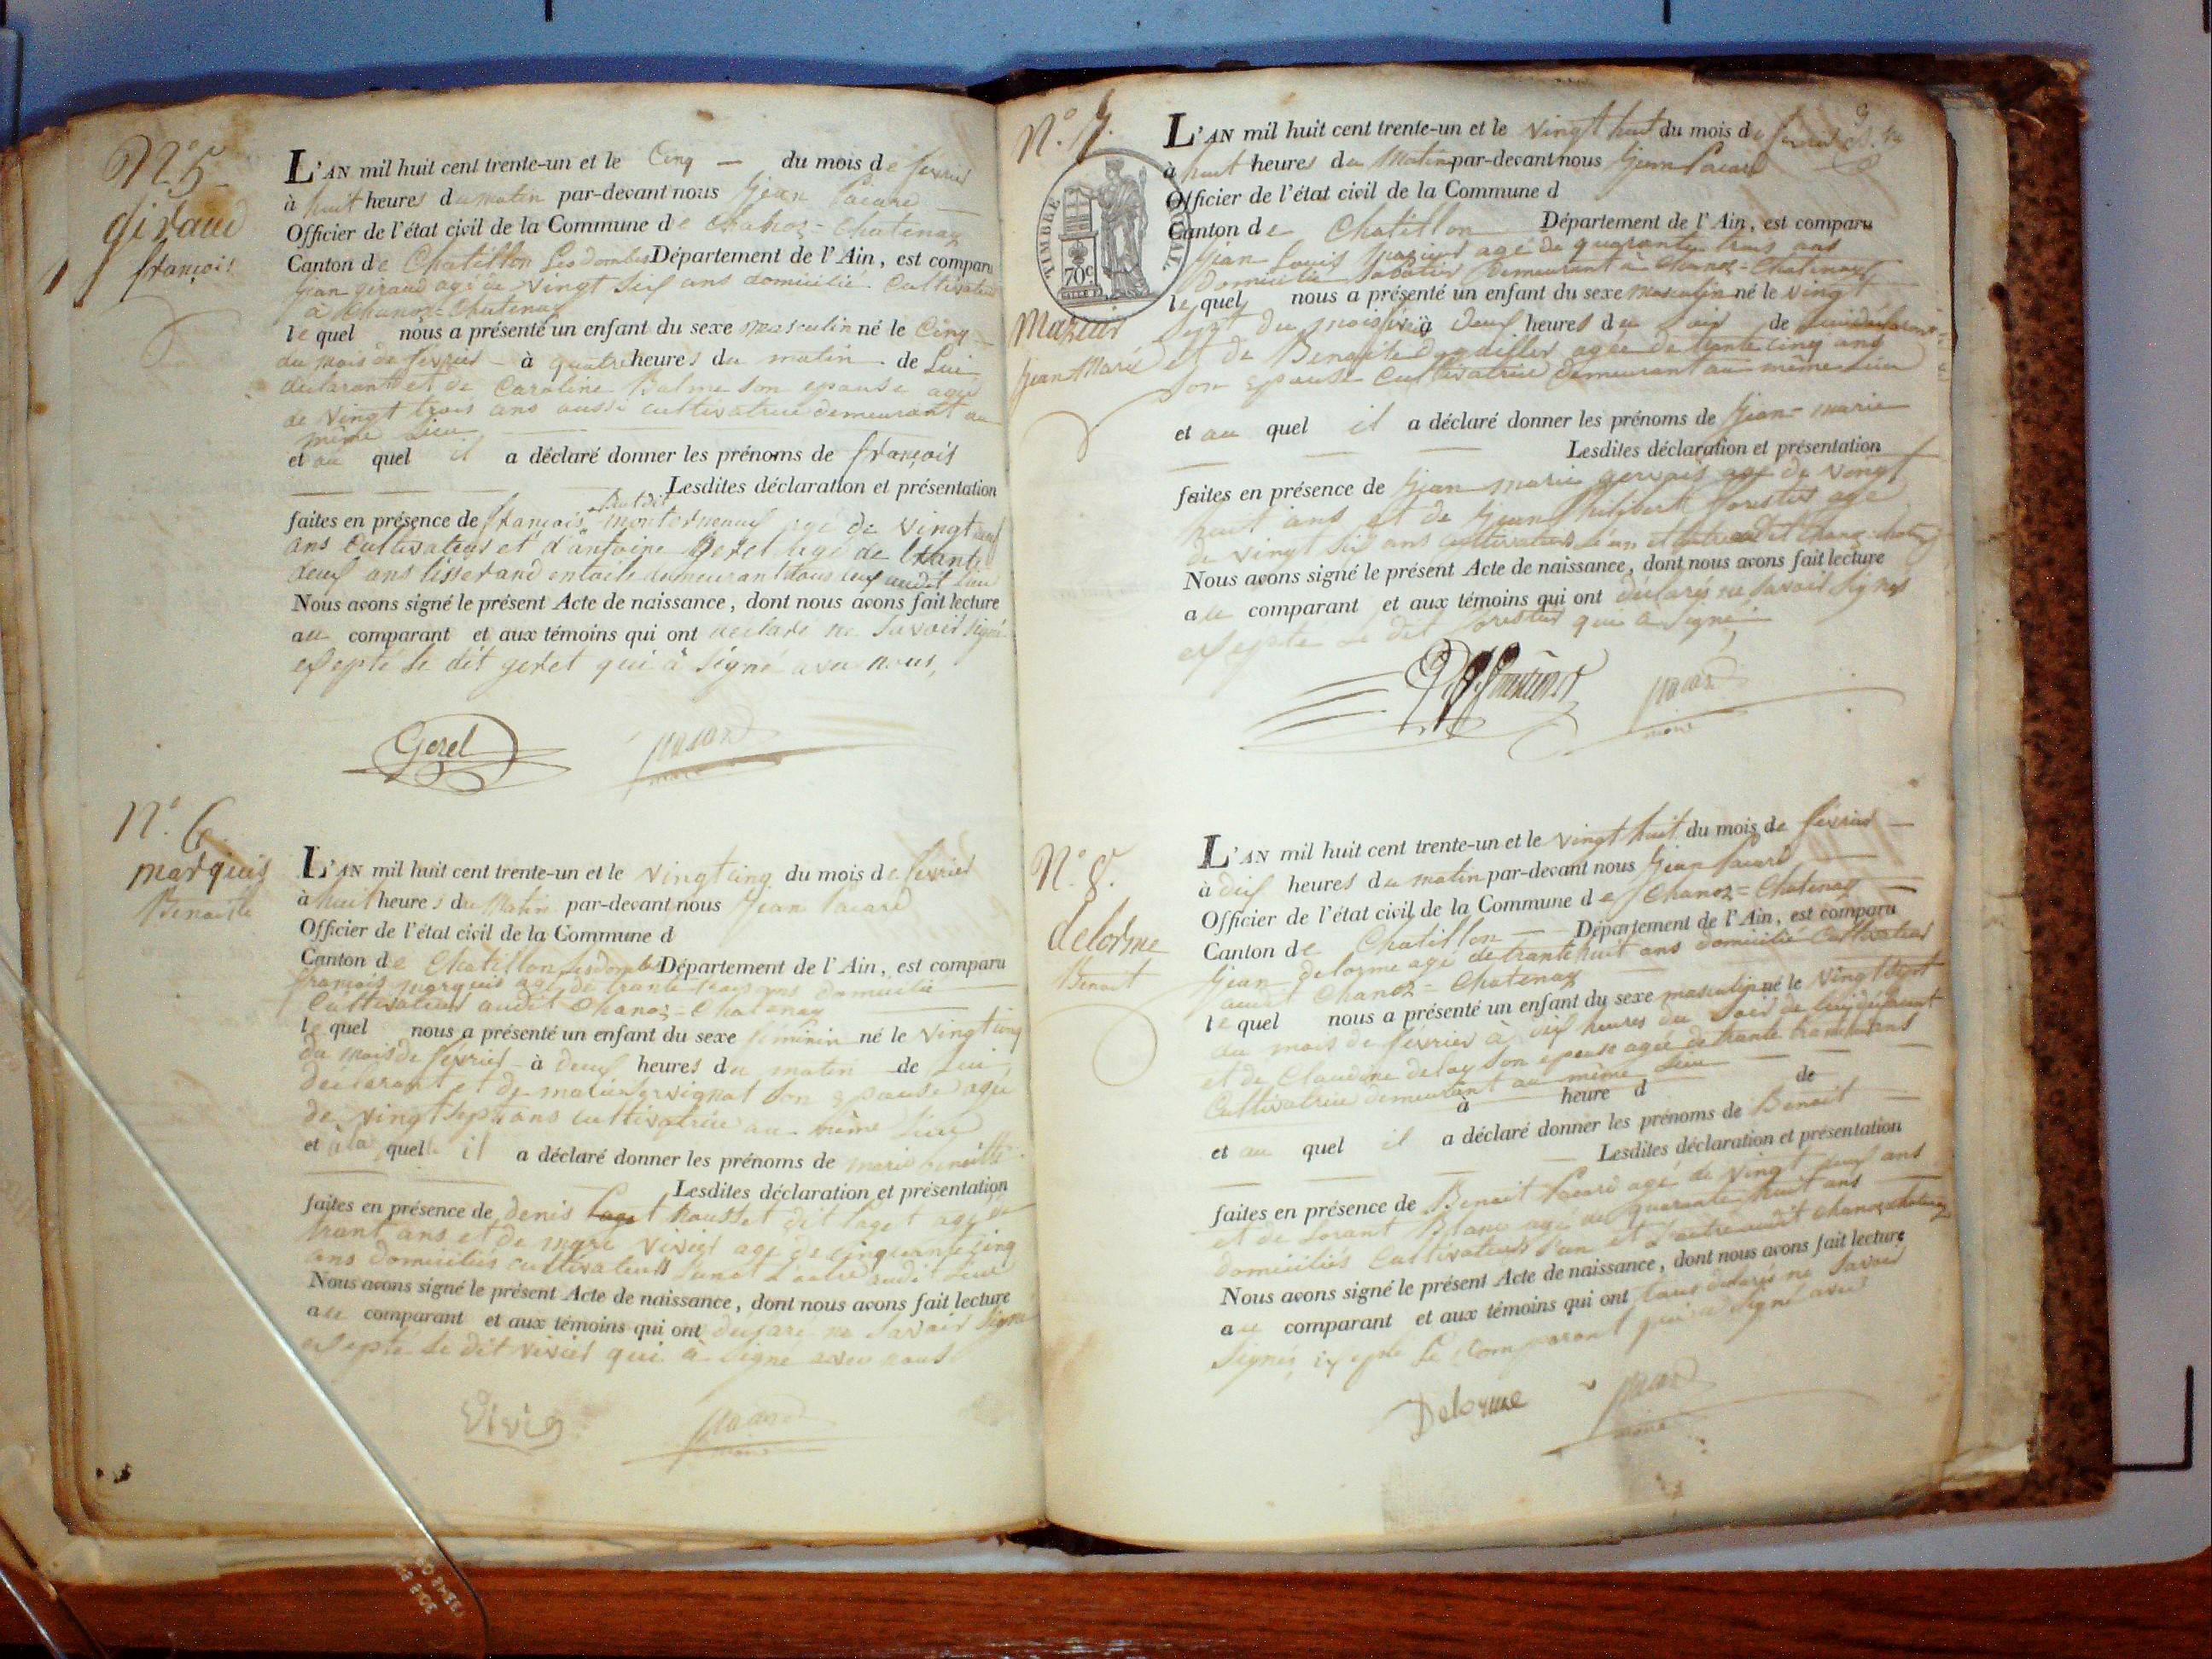 N° 5
giraud
françois
L'AN mil huit cent trente-un et le Cinq — du mois de fevrier
à huit heures du matin par-devant nous Jean Pacard
Officier de l'état civil de la Commune de Chanoz-Chatenay
Canton de Chatillon Les dombes Département de l'Ain, est comparu
Jean giraud agé de vingt six ans domicilié Cultivateur
à Chanoz-Chatenay
lequel nous a présenté un enfant du sexe masculin né le Cinq
du mois de fevrier à quatre heures du matin de Lui
déclarant et de Caroline Balme son epouse agée
de vingt trois ans aussi cultivatrice demeurant au
même Lieu
et au quel il a déclaré donner les prénoms de françois
Lesdites déclaration et présentation
faites en présence de françois montermeaux agé de vingt
ans Cultivateur et d'antoine Gerel agé de trante
deux ans tisserand en toile demeurant tous deux audit Lieu
Nous avons signé le présent Acte de naissance, dont nous avons fait lecture
au comparant et aux témoins qui ont déclaré ne savoir signé
exepté le dit gerel qui à signé avec nous,
Gerel
pacard
maire
N° 6
marquis
Benoitte
L'AN mil huit cent trente-un et le vingt cinq du mois de fevrier
à huit heures du Matin par-devant nous Jean Pacard
Officier de l'état civil de la Commune d
Canton de Chatillon Lesdombes Département de l'Ain, est comparu
françois marquis agé de trante trois ans domicilié
Cultivateur audit Chanoz-Chatenay
lequel nous a présenté un enfant du sexe feminin né le vingt cinq
du mois de fevrier à deux heures du matin de Lui
déclarant et de marie son epouse agée
de vingt sept ans cultivatrice au même Lieu
et à la quelle il a déclaré donner les prénoms de marie benoitte
Lesdites déclaration et présentation
faites en présence de denis Rousset dit Paget agé de
trant ans et de marc vivier agé de cinquante cinq
ans domiciliés cultivateurs l'un et l'autre audit Lieu
Nous avons signé le présent Acte de naissance, dont nous avons fait lecture
au comparant et aux témoins qui ont déclaré ne savoir signé
exepté le dit vivier qui à signé avec nous
pacard
maire
N° 7.
TIMBRE ROYAL
70c
Mazuir
Jean Marie
L'AN mil huit cent trente-un et le vingt huit du mois de fevrier
à huit heures du Matin par-devant nous Jean Pacard
Officier de l'état civil de la Commune d
Canton de Chatillon Département de l'Ain, est comparu
Jean Louis agé de quarante trois ans
domicilié Sabotier demeurant à Chanoz-Chatenay
lequel nous a présenté un enfant du sexe masculin né le vingt
sept du mois à deux heures du soir de
et de Benoite agée de trante cinq ans
son epouse Cultivatrice demeurant au même Lieu
et au quel il a déclaré donner les prénoms de Jean-marie
Lesdites déclaration et présentation
faites en présence de Jean marie gervais agé de vingt
huit ans et de Jean Philibert forestier agé
de vingt six ans Cultivateurs l'un et l'autre
Nous avons signé le présent Acte de naissance, dont nous avons fait lecture
au comparant et aux témoins qui ont déclarés ne savoir signer
exepté le dit forestier qui a signé
pacard
maire
N° 8.
delorme
Benoit
L'AN mil huit cent trente-un et le vingt huit du mois de fevrier
à dix heures du matin par-devant nous Jean Pacard
Officier de l'état civil de la Commune de Chanoz-Chatenay
Canton de Chatillon Département de l'Ain, est comparu
Jean delorme agé de trante huit ans domicilié Cultivateur
audit Chanoz-Chatenay
lequel nous a présenté un enfant du sexe masculin né le vingt sept
du mois de février à dix heures du Soir de lui déclarant
et de Claudine delay son epouse agée de trante
Cultivatrice demeurant au même Lieu
à heure d de
et au quel il a déclaré donner les prénoms de Benoit
Lesdites déclaration et présentation
faites en présence de Benoit Pacard agé de vingt neuf ans
et de Lorant Blanc agé de quarante huit ans
domiciliés Cultivateurs l'un et l'autre audit Chanoz-Chatenay
Nous avons signé le présent Acte de naissance, dont nous avons fait lecture
au comparant et aux témoins qui ont tous déclarés ne savoir
signés, exepté le Comparant qui a signé avec
Delorme
pacard
maire